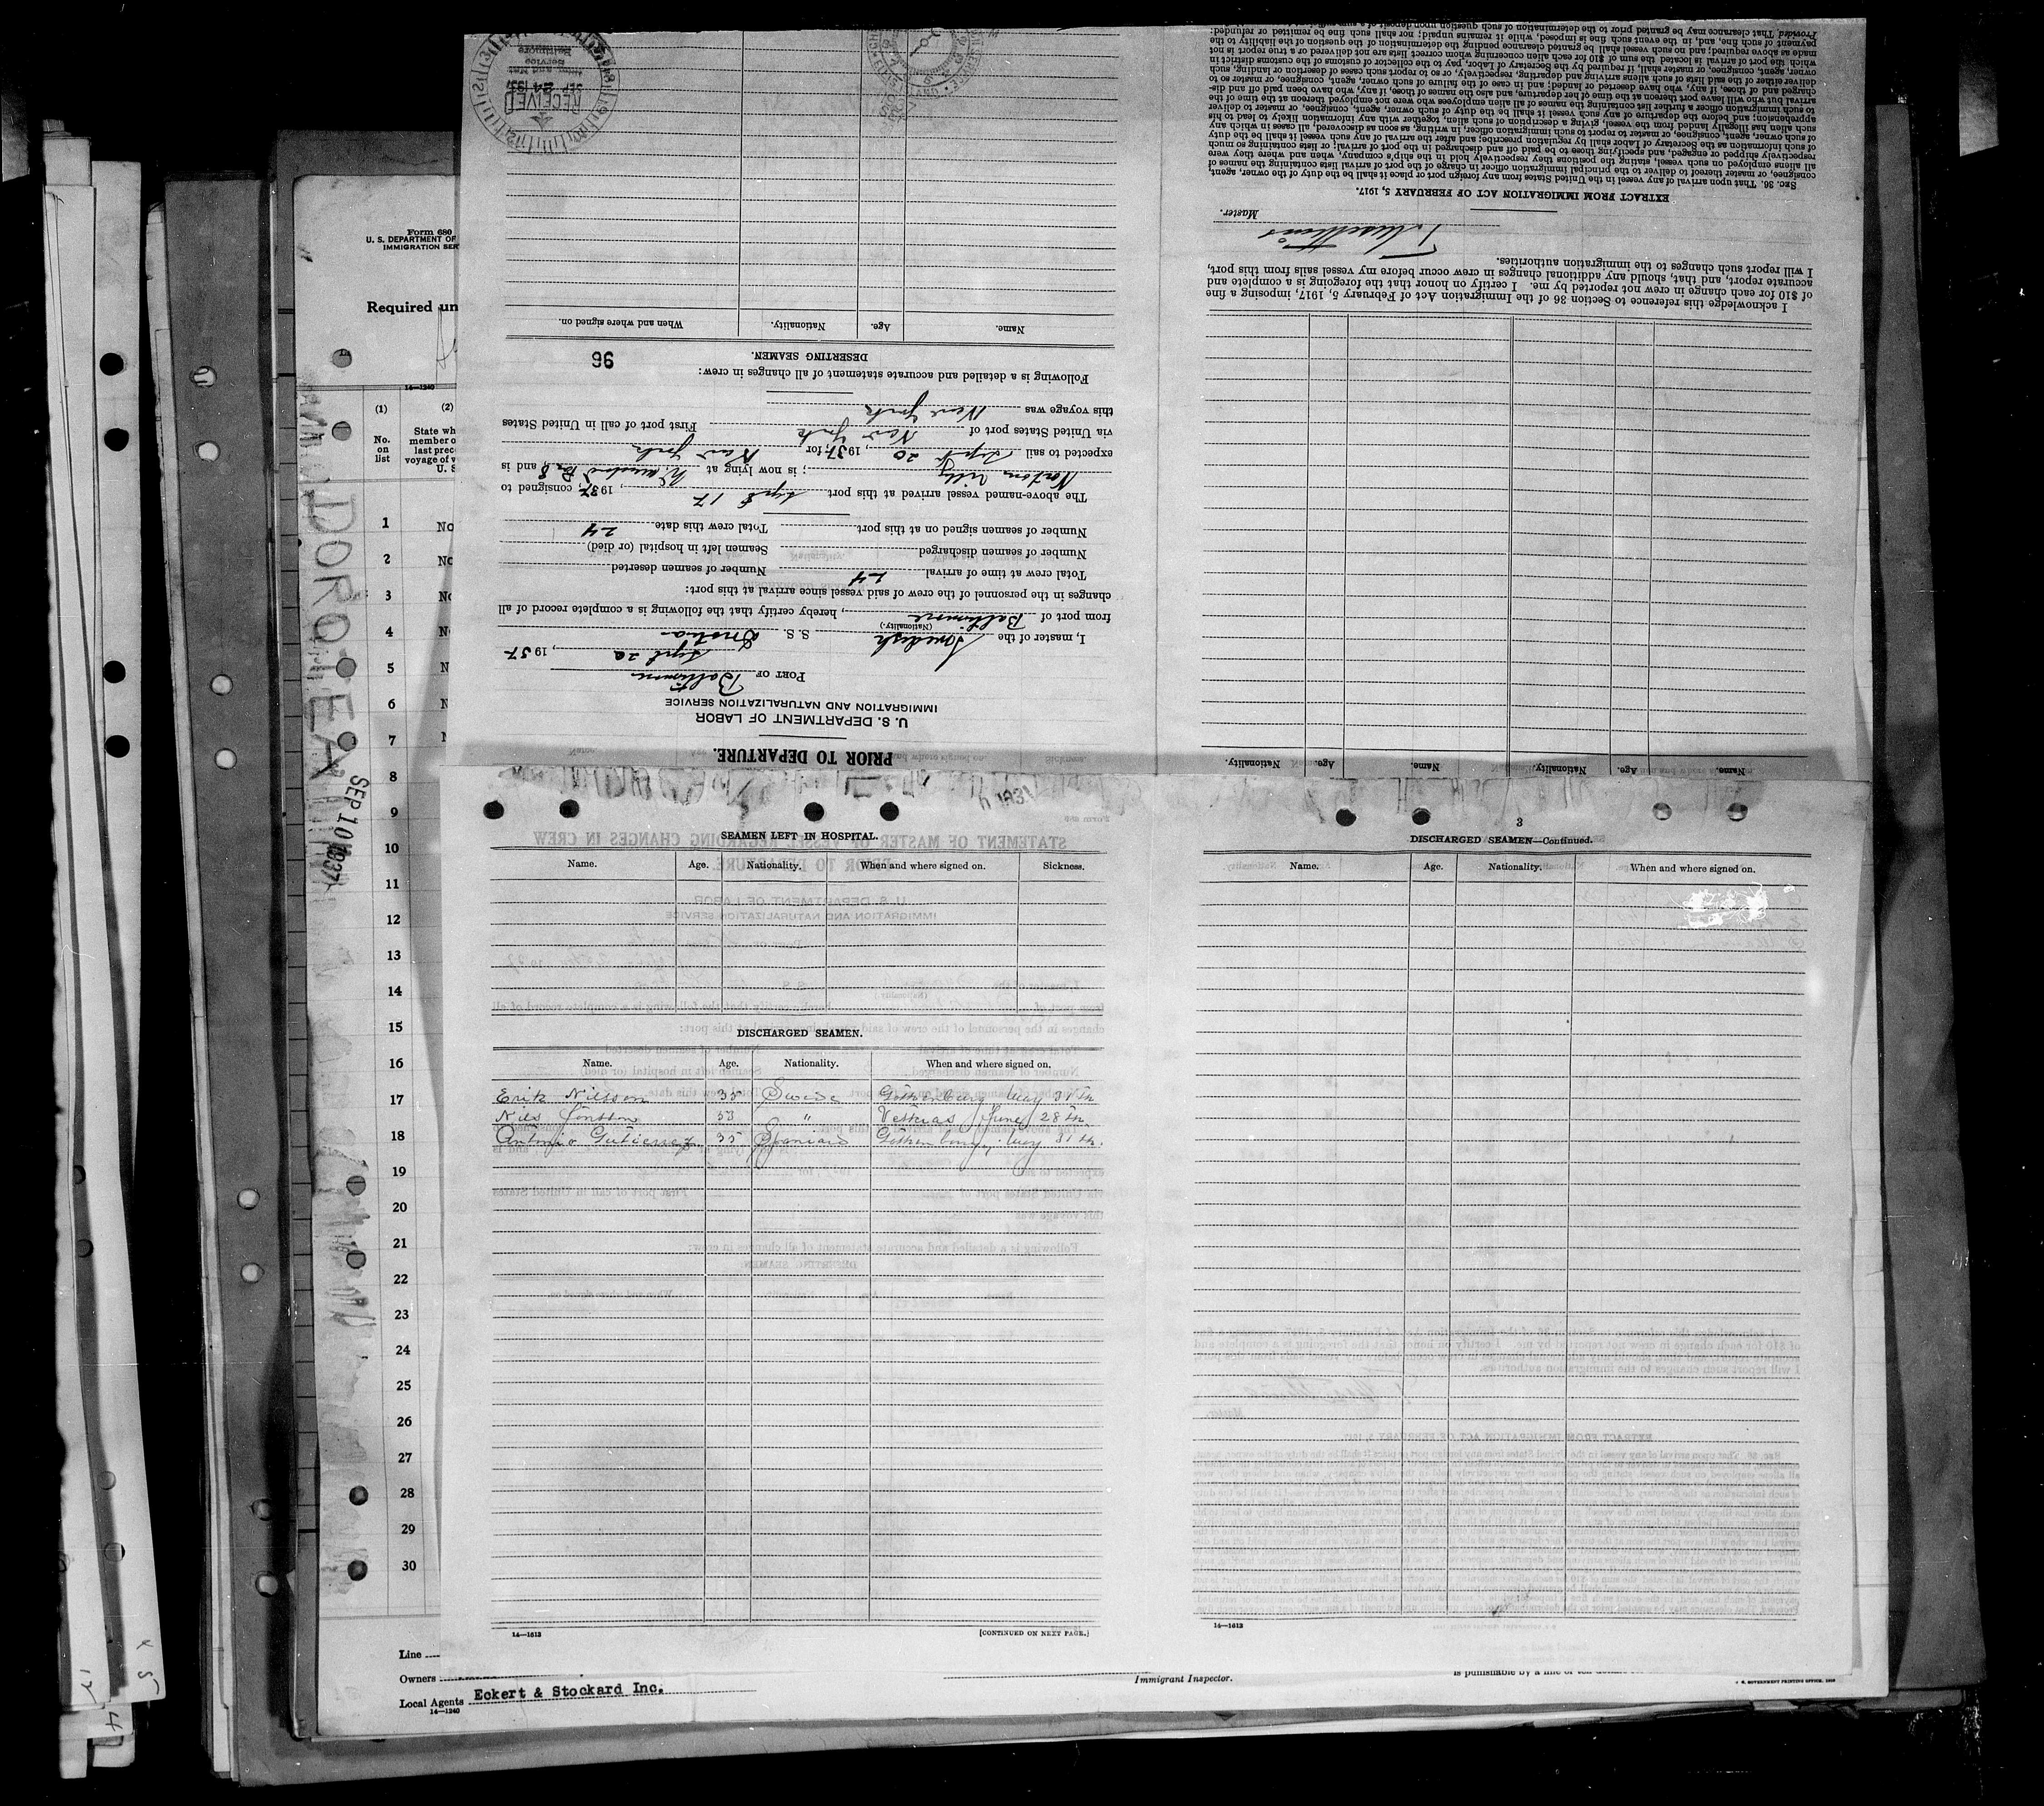 Form 680
U. S. DEPARTMENT OF
IMMIGRATION SER
Required un
14—1240
(1)
(2)
No.
on
list
State wh
member o
last prece
voyage of v
U. S
1 No
2 No
3 No
4 N
5 N
6 N
7
8
9
10
11
12
13
14
15
16
17
18
19
20
21
22
23
24
25
26
27
28
29
30
DOROTEA
SEP 10 1937
Line
Owners
Local Agents Eckert & Stockard Inc.
14—1240
Immigrant Inspector.
PRIOR TO DEPARTURE.
U. S. DEPARTMENT OF LABOR
IMMIGRATION AND NATURALIZATION SERVICE
PORT OF Baltimore
Sept 20, 1937
I, master of the Swedish S. S.
(Nationality.)
from port of Baltimore, hereby certify that the following is a complete record of all
changes in the personnel of the crew of said vessel since arrival at this port:
Total crew at time of arrival 24 Number of seamen deserted
Number of seamen discharged Seamen left in hospital (or died)
Number of seamen signed on at this port Total crew this date 24
The above-named vessel arrived at this port Sept 17, 1937, consigned to
Norton Lilly; is now lying at, and is
expected to sail Sept 20, 1937, for New York
via United States port of New York First port of call in United States
this voyage was New York
Following is a detailed and accurate statement of all changes in crew:
DESERTING SEAMEN.
96
Name. Age. Nationality. When and where signed on.
RECEIVED
SEP 24 193
Service
Baltimore
Name. Age. Nationality. Name. Age. Nationality.
I acknowledge this reference to Section 36 of the Immigration Act of February 5, 1917, imposing a fine
of $10 for each change in crew not reported by me. I certify on honor that the foregoing is a complete and
accurate report, and that, should any additional changes in crew occur before my vessel sails from this port,
I will report such changes to the immigration authorities.
Master.
EXTRACT FROM IMMIGRATION ACT OF FEBRUARY 5, 1917.
SEC. 36. That upon arrival of any vessel in the United States from any foreign port or place it shall be the duty of the owner, agent,
consignee, or master thereof to deliver to the principal immigration officer in charge of the port of arrival lists containing the names of
all aliens employed on such vessel, stating the positions they respectively hold in the ship's company, when and where they were
respectively shipped or engaged, and specifying those to be paid off and discharged in the port of arrival; or lists containing so much
of such information as the Secretary of Labor shall by regulation prescribe; and after the arrival of any such vessel it shall be the duty
of such owner, agent, consignee, or master to report to such immigration officer, in writing, as soon as discovered, all cases in which any
such alien has illegally landed from the vessel, giving a description of such alien, together with any information likely to lead to his
apprehension; and before the departure of any such vessel it shall be the duty of such owner, agent, consignee, or master to deliver
to such immigration officer a further list containing the names of all alien employees who were not employed thereon at the time of the
arrival but who will leave port thereon at the time of her departure, and also the names of those, if any, who have been paid off and dis-
charged and of those, if any, who have deserted or landed; and in case of the failure of such owner, agent, consignee, or master so to
deliver either of the said lists of such aliens arriving and departing, respectively, or so to report such cases of desertion or landing, such
owner, agent, consignee, or master, shall, if required by the Secretary of Labor, pay to the collector of customs of the customs district in
which the port of arrival is located the sum of $10 for each alien concerning whom correct lists are not delivered or a true report is not
made as above required; and no such vessel shall be granted clearance pending the determination of the question of the liability to the
payment of such fine, and, in the event such fine is imposed, while it remains unpaid; nor shall such fine be remitted or refunded:
Provided That clearance may be granted prior to the determination of such question upon deposit of a sum
SEAMEN LEFT IN HOSPITAL.
Name. Age. Nationality. When and where signed on. Sickness.
DISCHARGED SEAMEN.
Name. Age. Nationality. When and where signed on.
Erik Nilsson 35 Swede Gothenburg May 31 th
Nils Jönsson 53 " June 28 th
Antonio Gutierrez 35 Spaniard Gothenburg May 31 th.
14—1613
[CONTINUED ON NEXT PAGE.]
3
DISCHARGED SEAMEN—Continued.
Name. Age. Nationality. When and where signed on.
14—1613